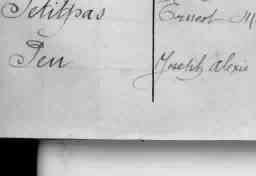 Petitpas Ernest M
Peu Joseph Alexis